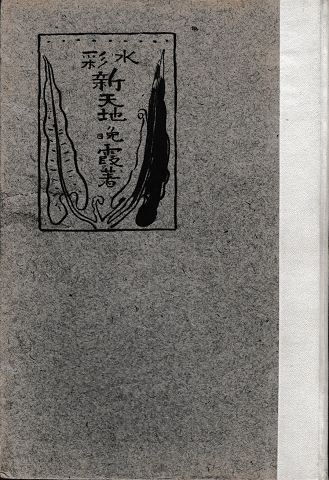 水彩
新天地
晩霞著